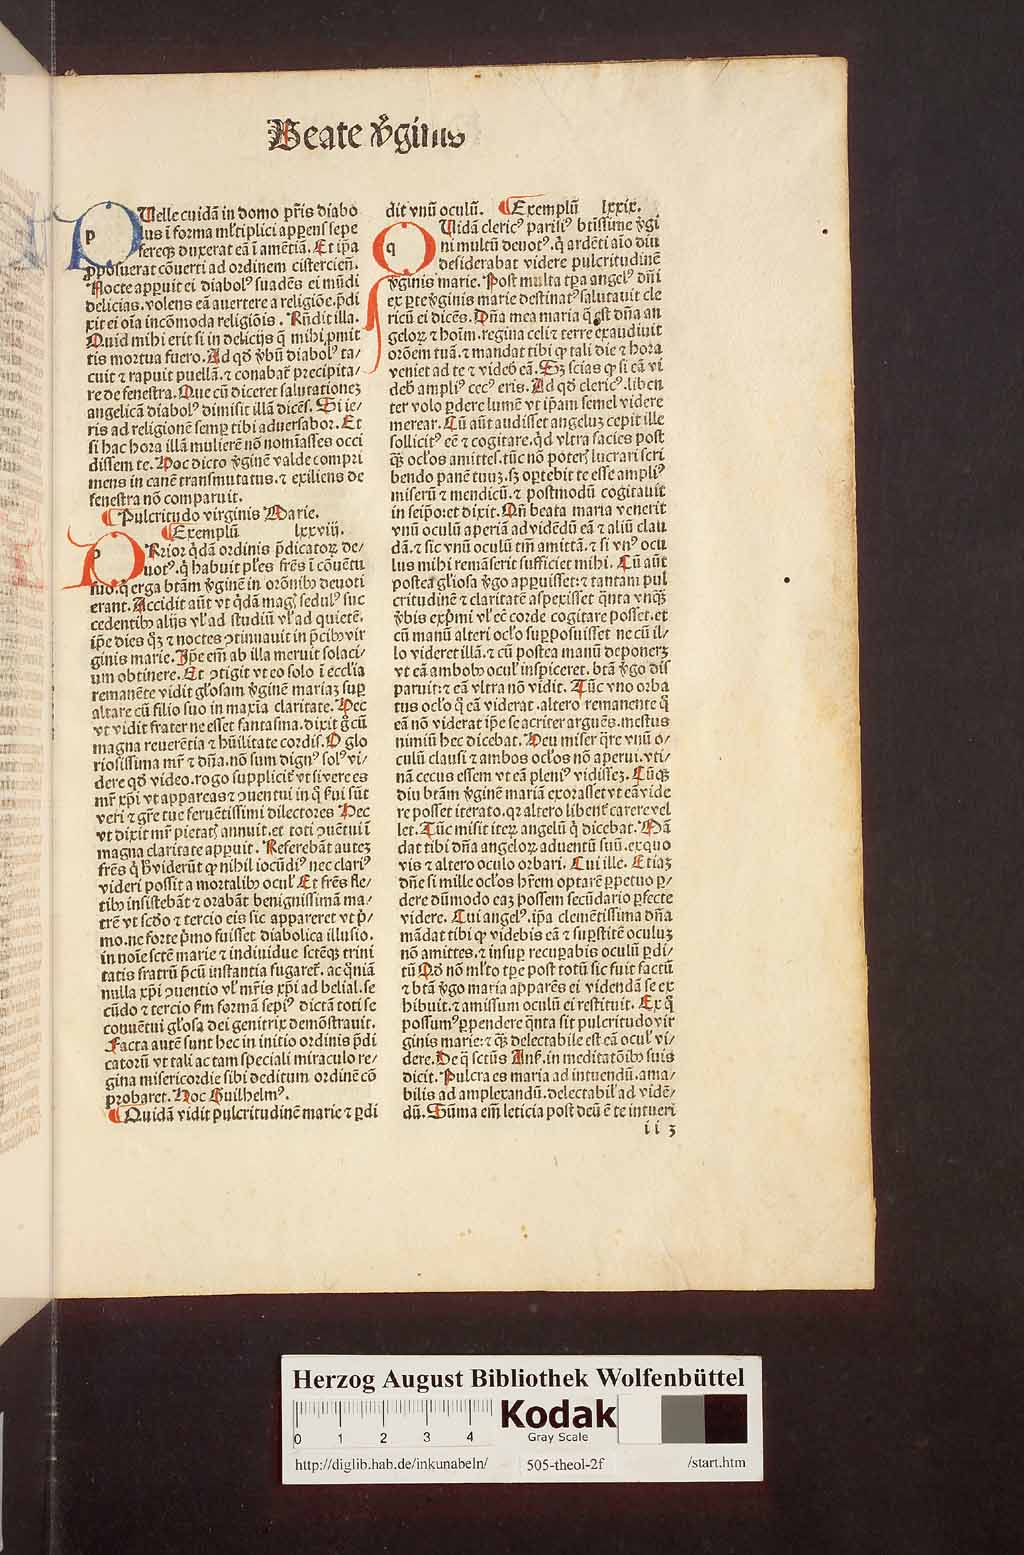 Beate v̄ginis
PUelle cuidā in domo pr̄is diabo
lus ī forma ml̄tiplici apparens sepe
fereqꝫ duxerat eā ī amētiā. Et ip̄a
ꝓposuerat cōuerti ad ordinem cistercieñ.
Nocte apparuit ei diabolꝰ suadēs ei mūdi
delicias. volens eā auertere a religiōe. p̄di
xit ei oīa incōmoda religiōis. Rn̄dit illa.
Quid mihi erit si in delicijs q̄ mihi ꝓmit
tis mortua fuero. Ad qd̄ v̄bū diabolꝰ ta/
cuit ⁊ rapuit puellā. ⁊ conabat᷑ precipita/
re de fenestra. Que cū diceret salutationeꝫ
angelicā diabolꝰ dimisit illā dicēs. Si ie/
ris ad religionē semꝑ tibi aduersabor. Et
si hac hora illā mulierē nō nomīasses occi
dissem te. Hoc dicto v̄ginē valde compri
mens in canē transmutatus. ⁊ exiliens de
fenestra nō comparuit.
¶ Pulcritudo virginis Marie.
¶ Exemplū lxxviij.
PRior qḋā ordinis p̄dicatorꝝ de/
uotꝰ. q̇ habuit ples fr̄es ī cōuētu
suo. q̇ erga btām v̄ginē in orōnibꝰ deuoti
erant. Accidit aūt vt qḋā mag̃r sedulꝰ suc
cedentibꝰ alijs vl̓ ad studiū vl̓ ad quietē.
ip̄e dies qꝫ ⁊ noctes ↄtinuauit in p̄cibꝰ vir
ginis marie. Ip̄e em̄ ab illa meruit solaci/
um obtinere. Et ↄtigit vt eo solo ī ecclīa
remanēte vidit gl̓osam v̄ginē mariaꝫ suꝑ
altare cū filio suo in maxīa claritate. Hec
vt vidit frater ne esset fantasma. dixit g̊ cū
magna reuerētia ⁊ hūilitate cordis. O glo
riosissima mr̄ ⁊ dn̄a. nō sum dignꝰ solꝰ vi/
dere qd̄ video. rogo supplicit̓ vt si vere es
mr̄ xp̄i vt appareas ⁊ ↄuentui in q̊ fr̄ui sūt
veri ⁊ gr̄e tue feruētissimi dilectores Hec
vt dixit mr̄ pietatꝭ annuit. et toti ↄuētui ī
magna claritate apparuit. Referebāt auteꝫ
fr̄es q̇ h̓ viderūt ꝙ nihil iocūdiꝰ nec clariꝰ
videri possit a mortalibꝰ ocul̓ Et fr̄es fle/
tibꝰ insistebāt ⁊ orabāt benignissimā ma/
trē vt scd̓o ⁊ tercio eis sic appareret vt p̄/
mo. ne forte p̄mo fuisset diabolica illusio.
in noīe sctē marie ⁊ indiuidue sctēqꝫ trini
tatis fratrū p̄cū instantia fugaret᷑. ac qm̄ā
nulla xp̄i ↄuentio vl̓ mr̄is xp̄i ad belial. se
cūdo ⁊ tercio fm̄ formā sepiꝰ dictā toti se
couuētui gl̓osa dei genitrix demōstrauit.
Facta autē sunt hec in initio ordinis p̄di
catorū vt tali ac tam speciali miraculo re/
gina misericordie sibi deditum ordinē cō
probaret. Hoc Guilhelmꝰ.
¶ Quidā vidit pulcritudinē marie ⁊ ꝑdi
dit vnū oculū. ¶ Exemplū lxxix.
QUidā clericꝰ parisiꝰ btissime v̄gi
ni multū deuotꝰ. q̇ ardēti aīo diu
desiderabat videre pulcritudinē
v̄ginis marie. Post multa tp̄a angelꝰ dn̄i
ex ꝑte v̄ginis marie destinatꝰ salutauit cle
ricū ei dicēs. Dn̄a mea maria q̄ est dn̄a an
gelorꝝ ⁊ hoīm. regina celi ⁊ terre exaudiuit
orōem tuā. ⁊ mandat tibi ꝙ tali die ⁊ hora
veniet ad te ⁊ videb̓ eā. Sꝫ scias ꝙ si eā vi
deb̓ ampliꝰ cecꝰ eris. Ad qd̄ clericꝰ. liben
ter volo ꝑdere lumē vt ip̄am semel videre
merear. Cū aūt audisset angeluꝫ cepit ille
sollicitꝰ eē ⁊ cogitare. qd̓ vltra facies post
qꝫ ocl̓os amittes. tūc nō poterꝭ lucrari scri
bendo panē tuuꝫ. sꝫ oꝑtebit te esse ampliꝰ
miserū ⁊ mendicū. ⁊ postmodū cogitauit
in seip̄o: et dixit. Qn̄ beata maria venerit
vnū oculū aperiā ad vidēdū eā ⁊ aliū clau
dā. ⁊ sic vnū oculū tm̄ amittā. ⁊ si vnꝰ ocu
lus mihi remāserit sufficiet mihi. Cū aūt
postea gl̓iosa v̄go apparuisset: ⁊ tantam pul
critudinē ⁊ claritatē aspexisset qnta vnqꝫ
v̄bis exp̄mi vl̓ eē corde cogitare posset. et
cū manū alteri ocl̓o supposuisset ne cū il/
lo videret illā. ⁊ cū postea manū deponerꝫ
vt eā ambobꝰ ocul̓ inspiceret. btā v̄go dis
paruit: ⁊ eā vltra nō vidit. Tūc vno orba
tus ocl̓o q̊ eā viderat. altero remanente q̊
eā nō viderat ip̄e se acriter arguēs. mestus
nimiū hec dicebat. Heu miser q̄re vnū o/
culū clausi ⁊ ambos ocl̓os nō aperui. vti/
nā cecus essem vt eā pleniꝰ vidissē. Cūqꝫ
diu btām v̄ginē mariā exorasset vt eā vide
re posset iterato. qꝛ altero libent̓ carere vel
let. Tūc misit iteꝝ angelū q̇ dicebat. Mā
dat tibi dn̄a angelorꝝ aduentū suū. ex quo
vis ⁊ altero oculo orbari. Cui ille. Etiaꝫ
dn̄e si mille ocl̓os hr̄em optarē ꝑpetuo ꝑ/
dere dūmodo eaꝫ possem secūdario ꝑfecte
videre. Cui angelꝰ. ip̄a clemētissima dn̄a
mādat tibi ꝙ videbis eā ⁊ suꝑstitē oculuꝫ
nō amittes. ⁊ insuꝑ recuꝑabis oculū ꝑdi/
tū Qd̓ nō ml̓to tꝑe post totū sic fuit factū
⁊ btā v̄go maria apparēs ei videndā se ex
hibuit. ⁊ amissum oculū ei restituit. Ex q̊
possumꝰ ꝑpendere qnta sit pulcritudo vir
ginis marie: ⁊ qꝫ delectabile est eā ocul̓ vi/
dere. De q̊ sctūs Ans̓. in meditatōibꝰ suis
dicit. Pulcra es maria ad intuendū. ama/
bilis ad amplexandū. delectabil̓ ad vidē/
dū. Sūma em̄ leticia post deū ē te intueri
ii 3
Herzog August Bibliothek Wolfenbüttel
0 1 2 3 4
Kodak
Gray Scale
http://diglib.hab.de/inkunabeln/ 505-theol-2f /start.htm